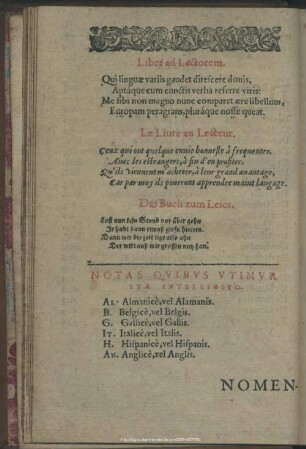 Liber ad Lectorem.
Qui linguæ variis gaudet ditescere donis,
Aptáque cum cunctis verba referre viris:
Me sibi non magno nunc comparet ære libellum,
Europam peragrans, pluráque nosse queat.
Le Liure au Lecteur.
Ceux qui ont quelque enuie honneste à frequenter
Auec les estrangers, à fin d'en profiter.
Qu'ils viennent m'acheter, à leur grand auantage,
Car par moy ils pourront apprendre maint langage.
Das Buch zum Leser.
Laß nun kein Stund vor über gehn
Ir habt dann etwas hierin.
Dann wir die zeit ligt also ahn
Der vertrauß mir großen nutz han.
NOTAS QVIBVS VTIMVR
ITA INTELLIGITO.
AL. Almanicè, vel Alamanis.
B. Belgicè, vel Belgis.
G. Gallicè, vel Gallis.
IT. Italicè, vel Italis.
H. Hispanicè, vel Hispanis.
AN. Anglicè, vel Anglis.
NOMEN-